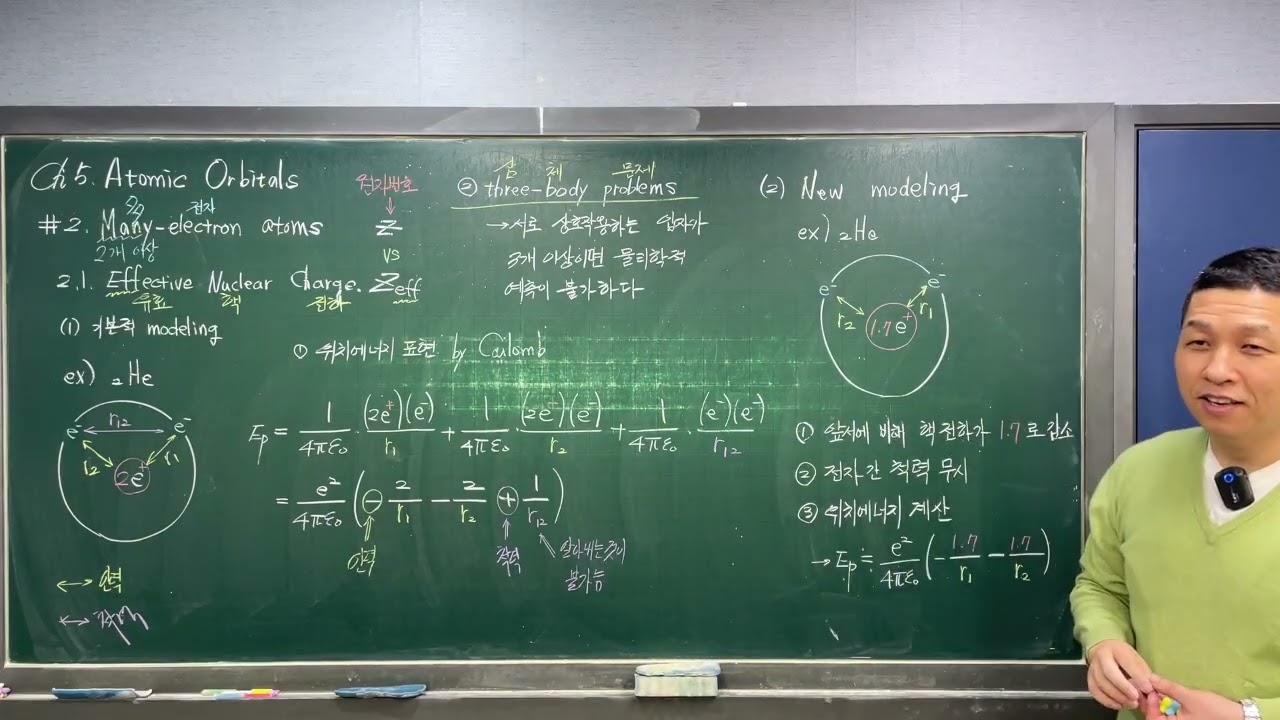 Ch 5. Atomic Orbitals
많 전자
#2. Many-electron atoms
2개 이상
2.1. Effective Nuclear Charge. Zeff
유효 핵 전하
원자번호
Z
vs
(1) 기본적 modeling
ex) ₂He
e⁻ r₁₂ e⁻
r₂ 2e⁺ r₁
↔ 인력
↔ 척력
삼 체 문제
② three-body problems
→ 서로 상호작용하는 입자가
3개 이상이면 물리학적
예측이 불가하다
① 위치에너지 표현 by Coulomb
Ep = 1/4πε₀ · (2e⁺)(e⁻)/r₁ + 1/4πε₀ · (2e⁻)(e⁻)/r₂ + 1/4πε₀ · (e⁻)(e⁻)/r₁₂
= e²/4πε₀ (− 2/r₁ − 2/r₂ + 1/r₁₂)
인력
척력
알아내는 것이
불가능
(2) New modeling
ex) ₂He
e⁻ e⁻
r₂ 1.7e⁺ r₁
① 앞서에 비해 핵전하가 1.7로 감소
② 전자간 척력 무시
③ 위치에너지 계산
→ Ep ≒ e²/4πε₀ (− 1.7/r₁ − 1.7/r₂)